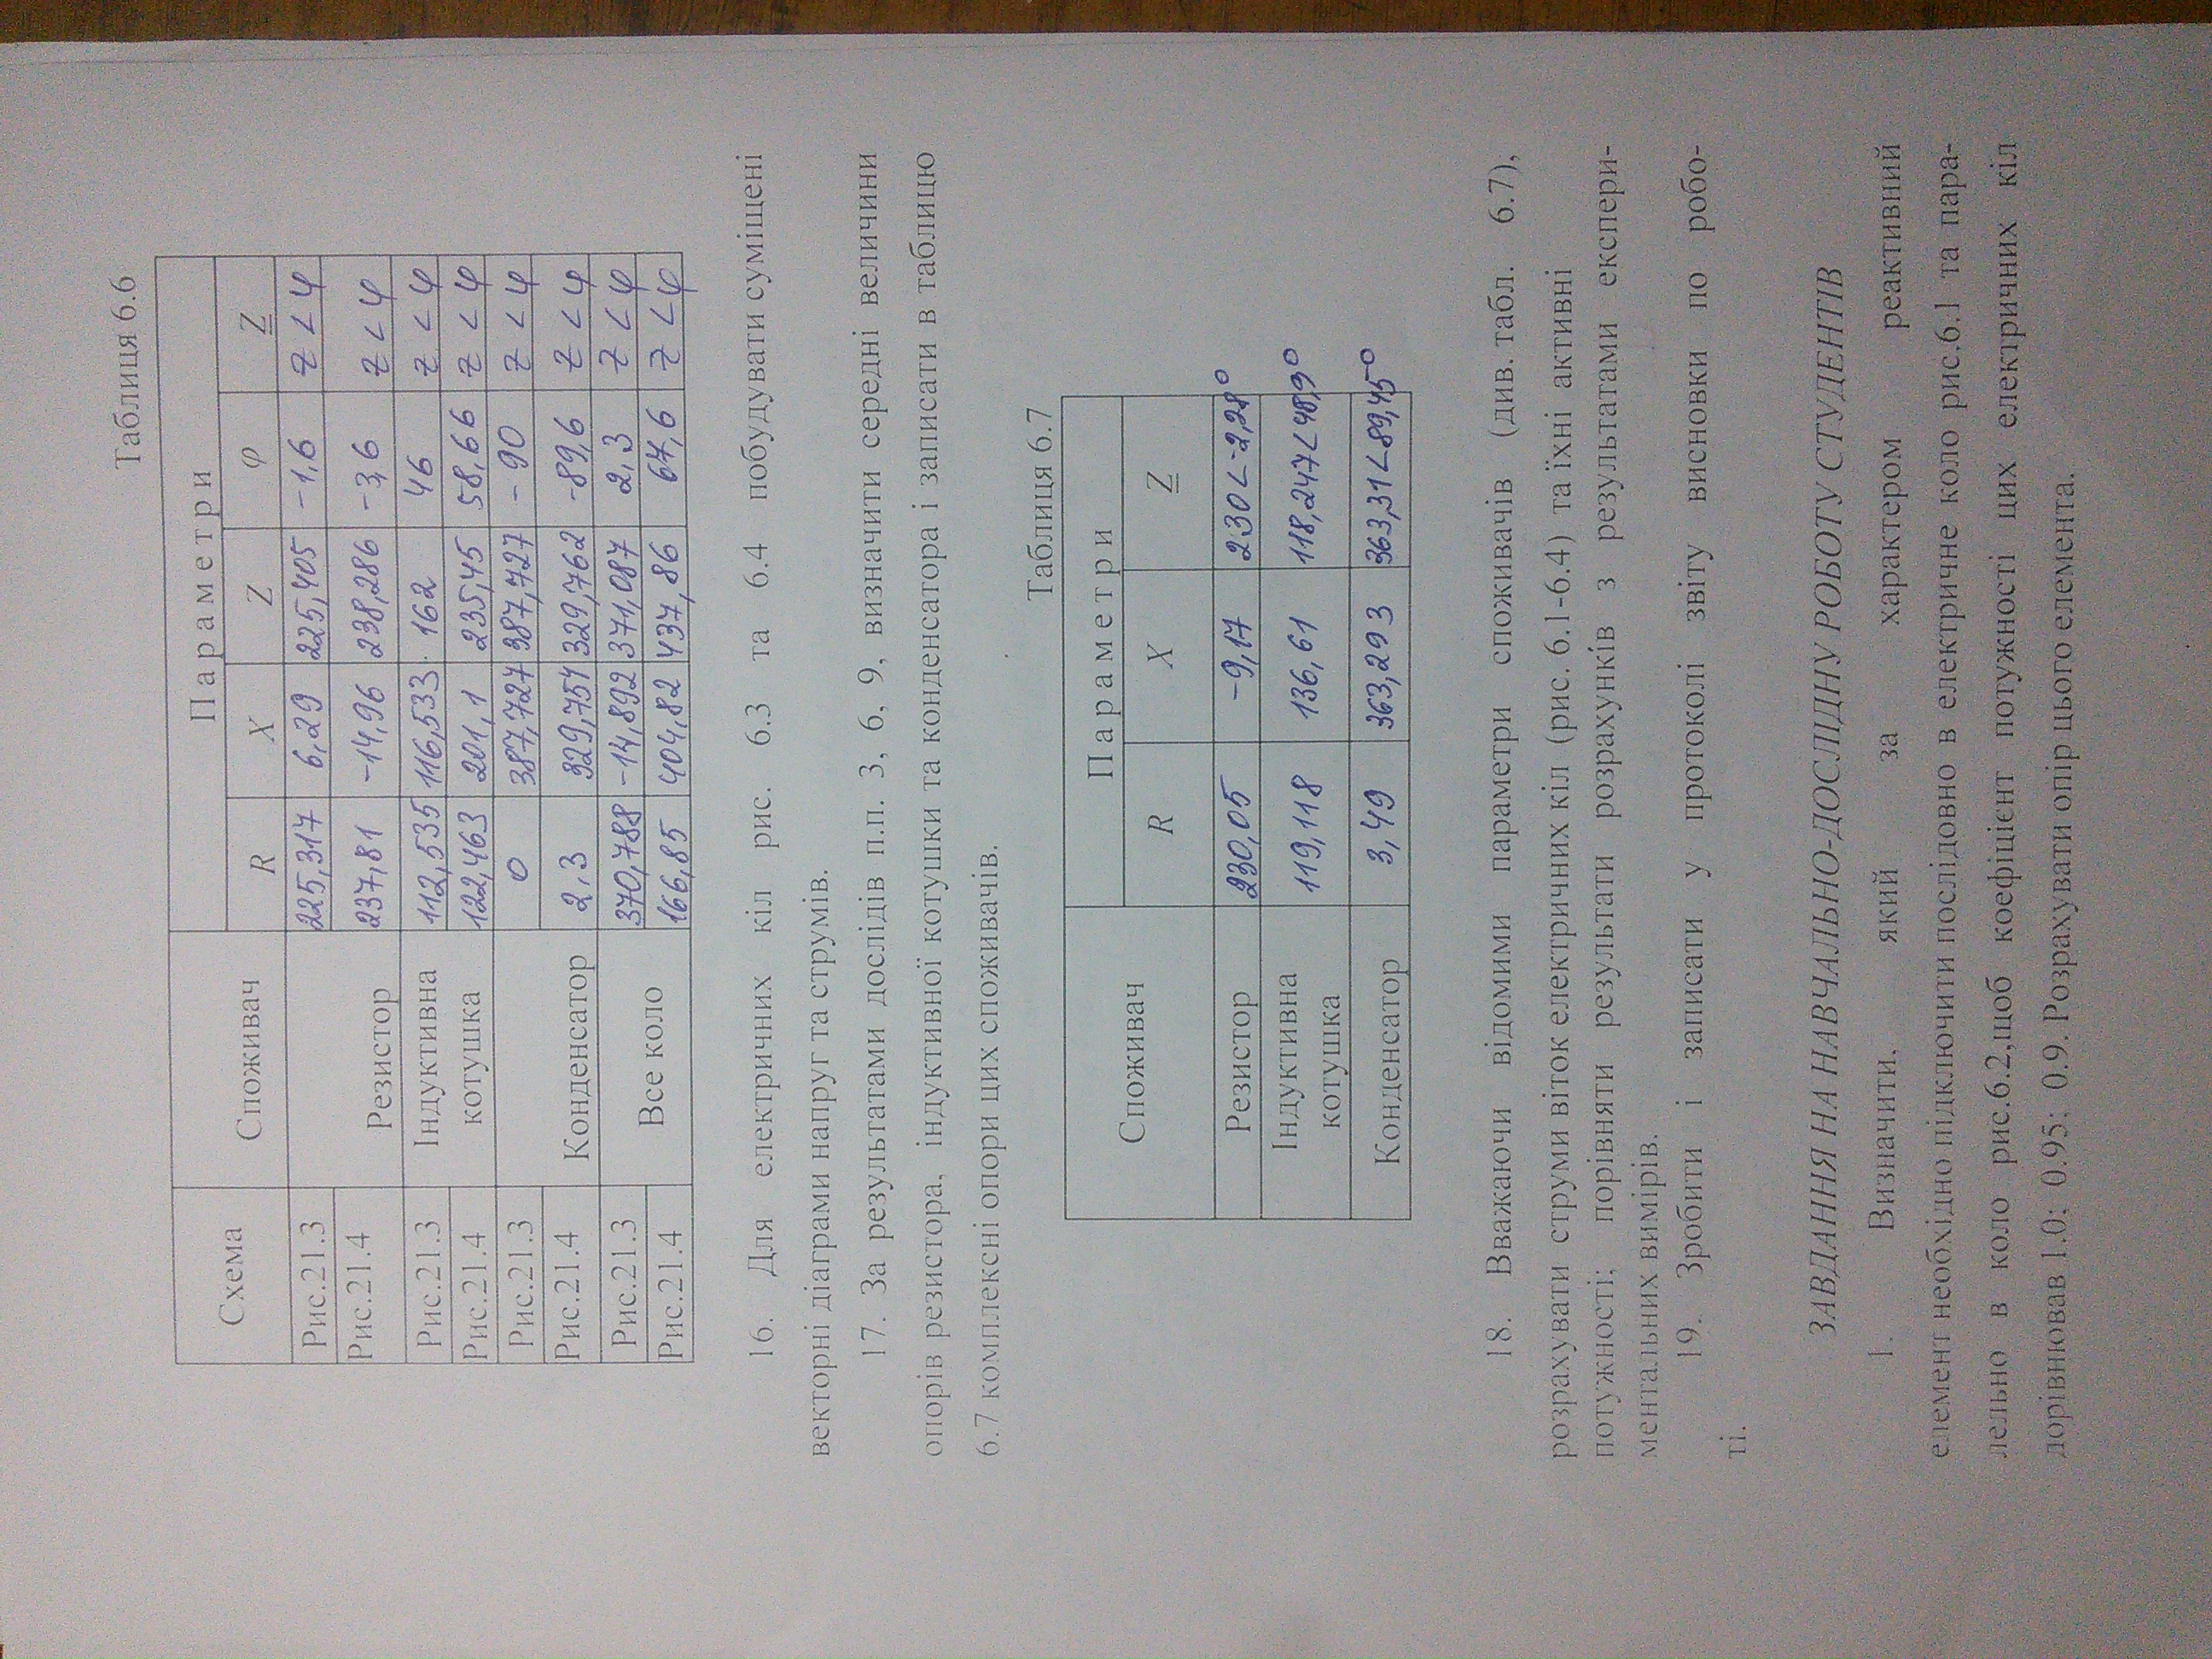 Таблиця 6.6
Схема Споживач Параметри
R X Z φ Z
Рис.21.3 225,317 6,29 225,405 -1,6 z < φ
Рис.21.4 Резистор 237,81 -14,96 238,286 -3,6 z < φ
Рис.21.3 Індуктивна 112,535 116,533 162 46 z < φ
Рис.21.4 котушка 122,463 201,1 235,45 58,66 z < φ
Рис.21.3 0 387,727 387,727 -90 z < φ
Рис.21.4 Конденсатор 2,3 329,754 329,762 -89,6 z < φ
Рис.21.3 Все коло 370,788 -14,892 371,087 2,3 z < φ
Рис.21.4 166,85 404,82 437,86 67,6 z < φ
16. Для електричних кіл рис. 6.3 та 6.4 побудувати суміщені
векторні діаграми напруг та струмів.
17. За результатами дослідів п.п. 3, 6, 9, визначити середні величини
опорів резистора, індуктивної котушки та конденсатора і записати в таблицю
6.7 комплексні опори цих споживачів.
Таблиця 6.7
Споживач Параметри
R X Z
Резистор 230,05 -9,17 230<-2,28°
Індуктивна
котушка 119,118 136,61 118,247<48,9°
Конденсатор 3,49 363,293 363,31<89,45°
18. Вважаючи відомими параметри споживачів (див. табл. 6.7),
розрахувати струми віток електричних кіл (рис. 6.1-6.4) та їхні активні
потужності; порівняти результати розрахунків з результатами експери-
ментальних вимірів.
19. Зробити і записати у протоколі звіту висновки по робо-
ті.
ЗАВДАННЯ НА НАВЧАЛЬНО-ДОСЛІДНУ РОБОТУ СТУДЕНТІВ
1. Визначити, який за характером реактивний
елемент необхідно підключити послідовно в електричне коло рис.6.1 та пара-
лельно в коло рис.6.2,щоб коефіцієнт потужності цих електричних кіл
дорівнював 1.0; 0.95; 0.9. Розрахувати опір цього елемента.